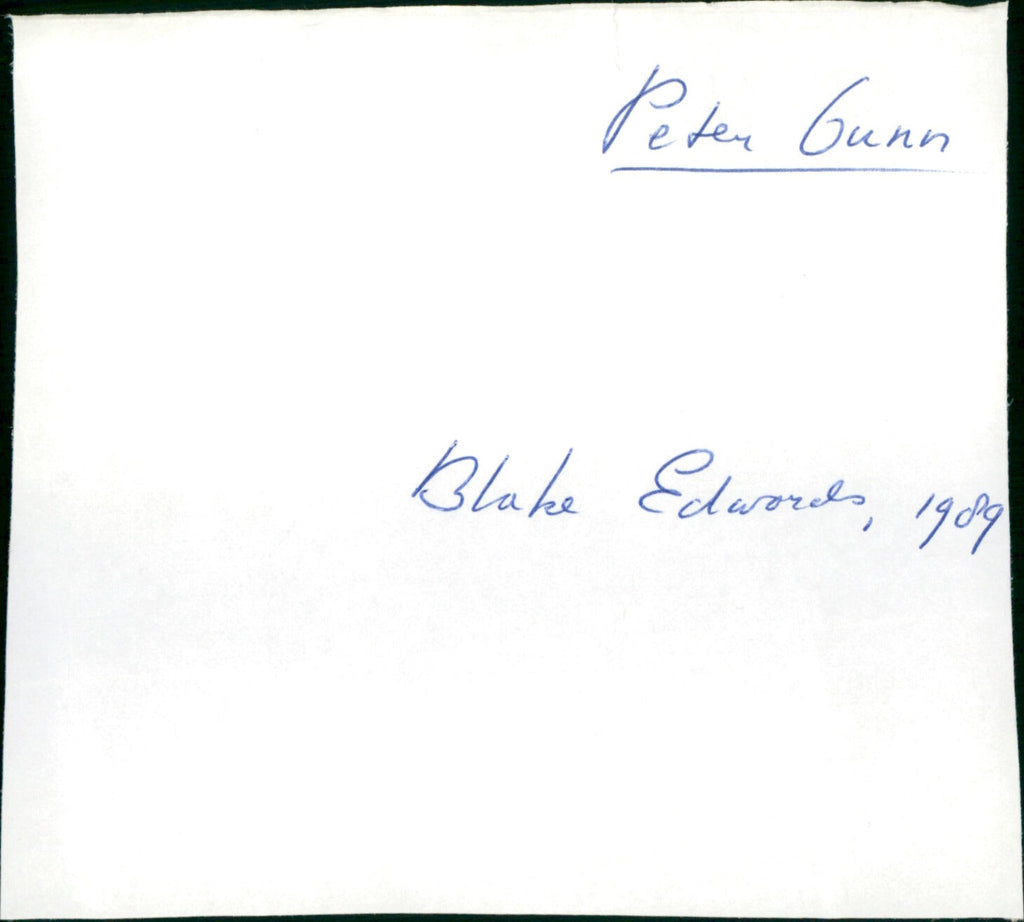 Peter Gunn
Blake Edwards, 1989